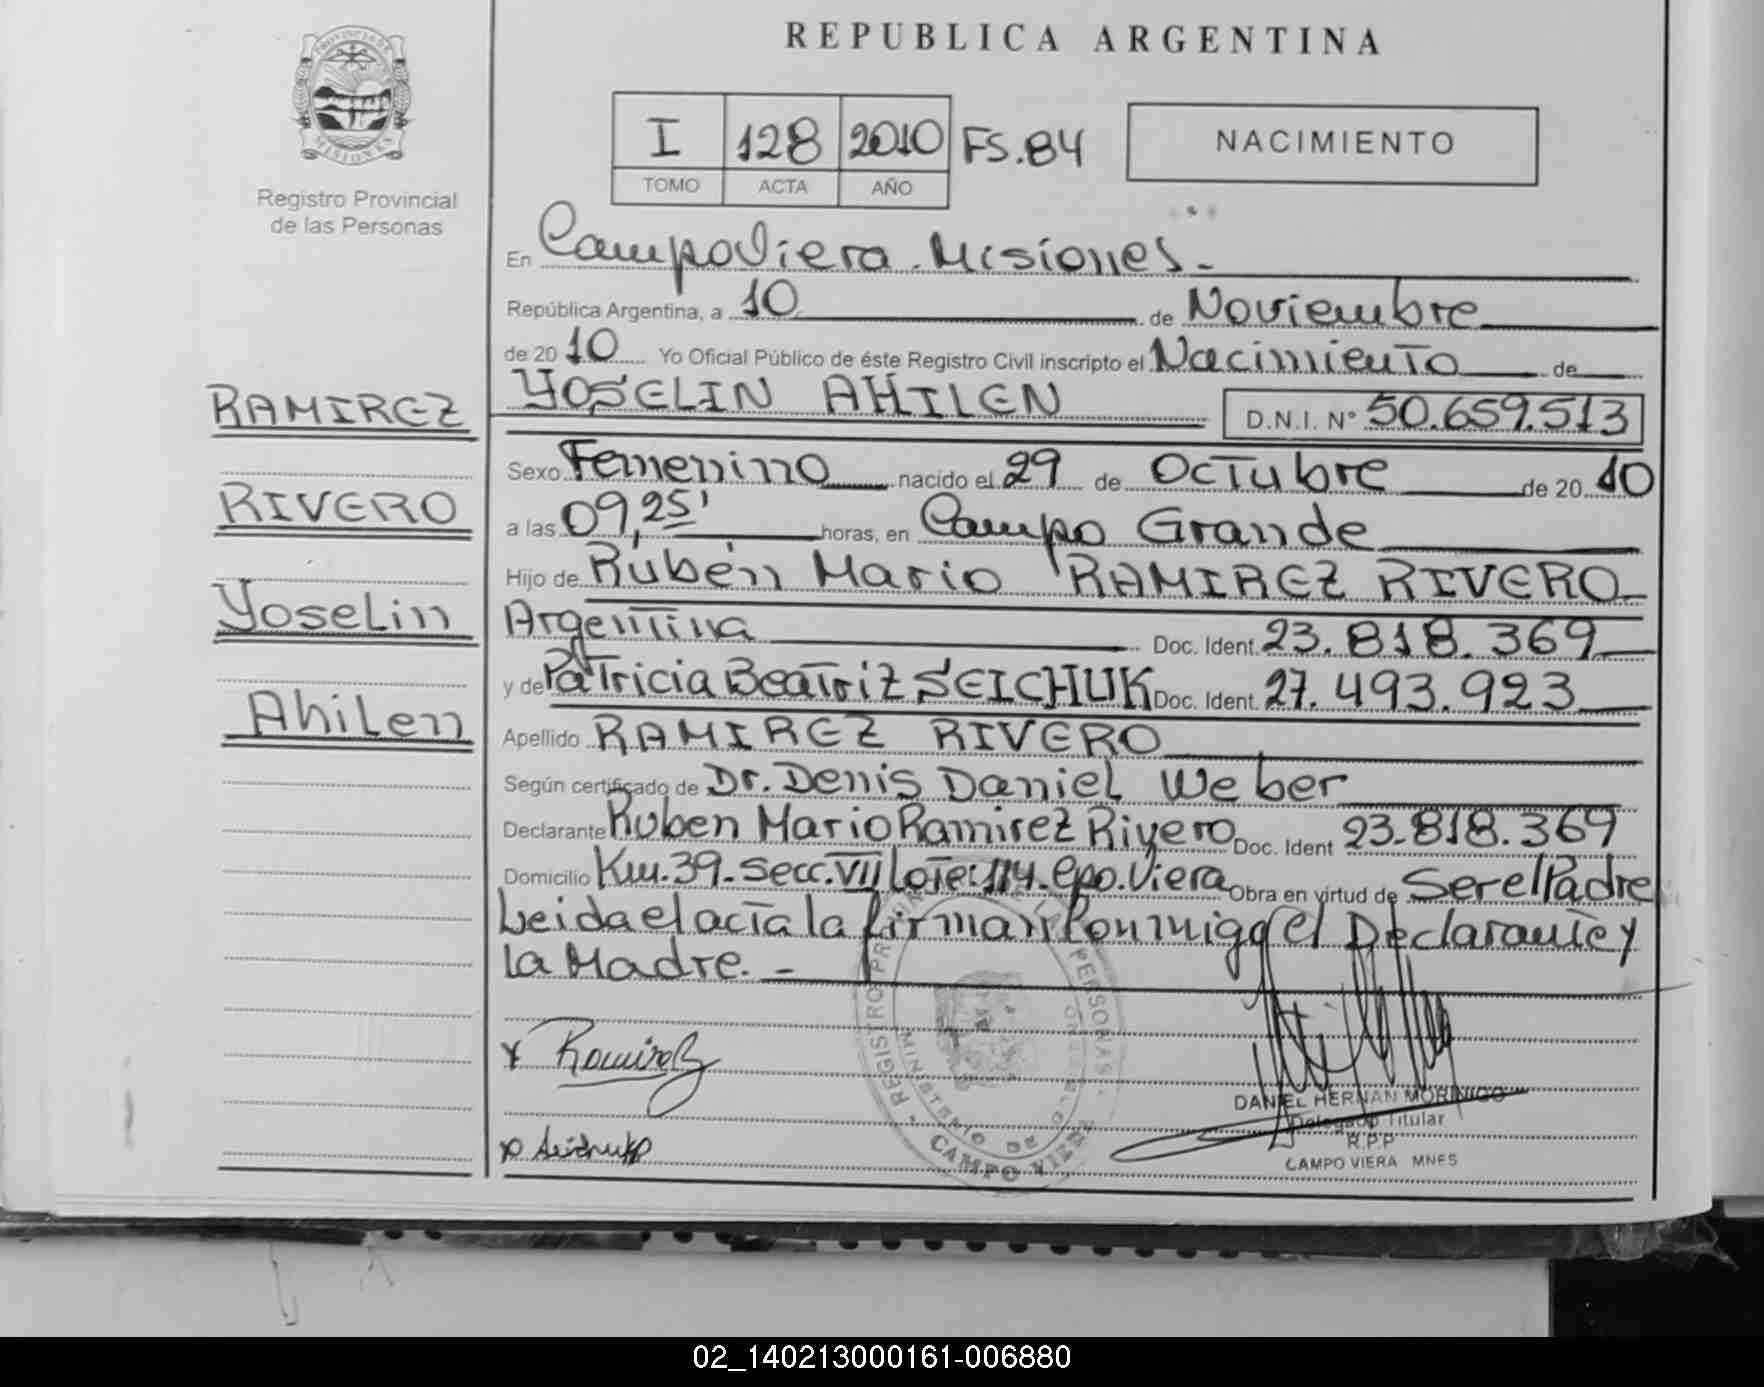 REPUBLICA ARGENTINA
PROVINCIA DE
MISIONES
Registro Provincial
de las Personas
I 128 2010 FS.84
TOMO ACTA AÑO
NACIMIENTO
En Campo Viera. Misiones.-
República Argentina, a 10 de Noviembre
de 20 10 Yo Oficial Público de éste Registro Civil inscripto el Nacimiento de
YOSELIN AHILEN D.N.I. N° 50.659.513
RAMIREZ
RIVERO
Yoselin
Ahilen
Sexo Femenino nacido el 29 de Octubre de 20 10
a las 09,25' horas, en Campo Grande
Hijo de Rubén Mario RAMIREZ RIVERO
Argentina Doc. Ident. 23.818.369
y de Patricia Beatriz SEICHUK Doc. Ident. 27.493.923
Apellido RAMIREZ RIVERO
Según certificado de Dr. Denis Daniel Weber
Declarante Ruben Mario Ramirez Rivero Doc. Ident 23.818.369
Domicilio Km.39.Secc.VII Lote:114.Cpo.Viera Obra en virtud de Ser el Padre
Leida el acta la firman Conmigo el Declarante y
la Madre.-
Ramirez
Seichuk
REGISTRO PROVINCIAL DE LAS PERSONAS
MINISTERIO DE GOBIERNO
CAMPO VIERA
DANIEL HERNAN MORINIGO
Delegado Titular
R.P.P
CAMPO VIERA MNES
02_140213000161-006880